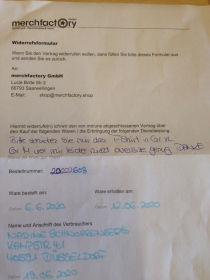 merchfactory
Widerrufsformular
Wenn Sie den Vertrag widerrufen wollen, dann füllen Sie bitte dieses Formular aus
und senden Sie es zurück.
An:
merchfactory GmbH
Lucie Bolte Str. 2
66793 Saarwellingen
E-Mail: shop@merchfactory.shop
Hiermit widerrufe(n) ich/wir den von mir/uns abgeschlossenen Vertrag über
den Kauf der folgenden Waren / die Erbringung der folgenden Dienstleistung
Bitte Sie das T-Shirt in Gr.
Gr M war mir leider nicht genug. DANKE
Bestellnummer:
Ware bestellt am:
Ware erhalten am:
Datum 6.6.2020
Datum 12.06.2020
Name und Anschrift des Verbrauchers
NADINE
DÜSSELDORF
Datum 19.06.2020